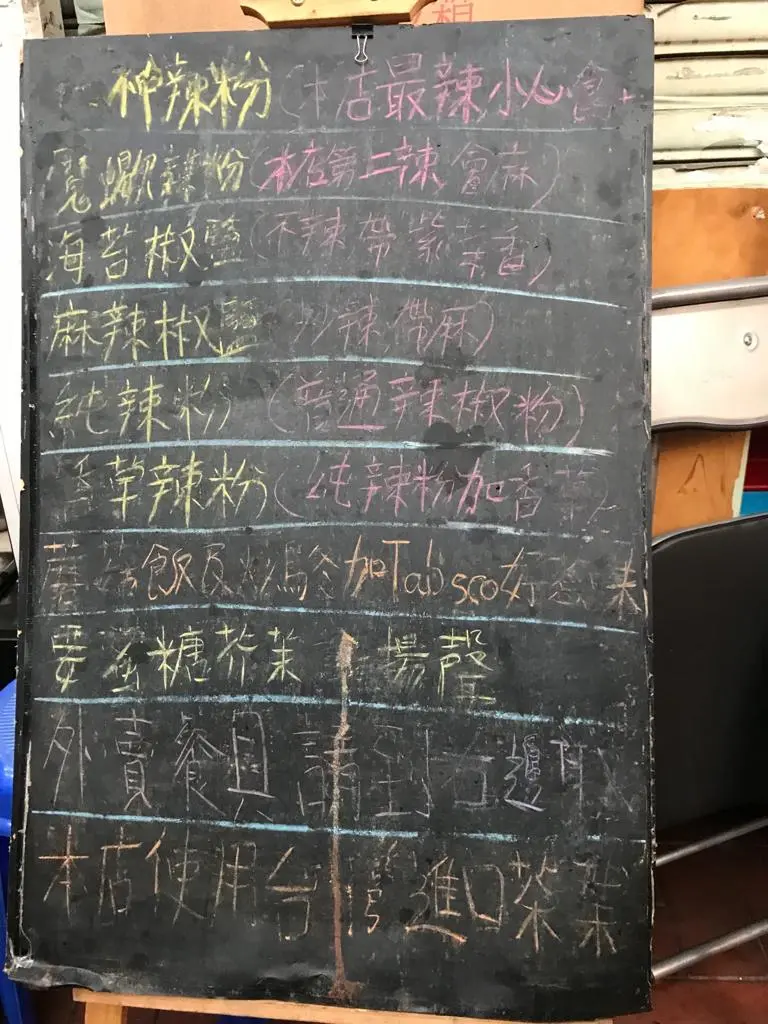 神辣粉(本店最辣,小心食
魔蠍辣粉(本店第二辣,會麻)
海苔椒鹽(不辣,帶紫菜香)
麻辣椒鹽(小辣,帶麻)
純辣粉(普通辣椒粉)
香草辣粉(純辣粉加香草)
蘑菇飯及 加Tabsco好
要 糖芥茉 揚聲
外賣餐具 請到右邊取
本店使用台灣進口茶葉